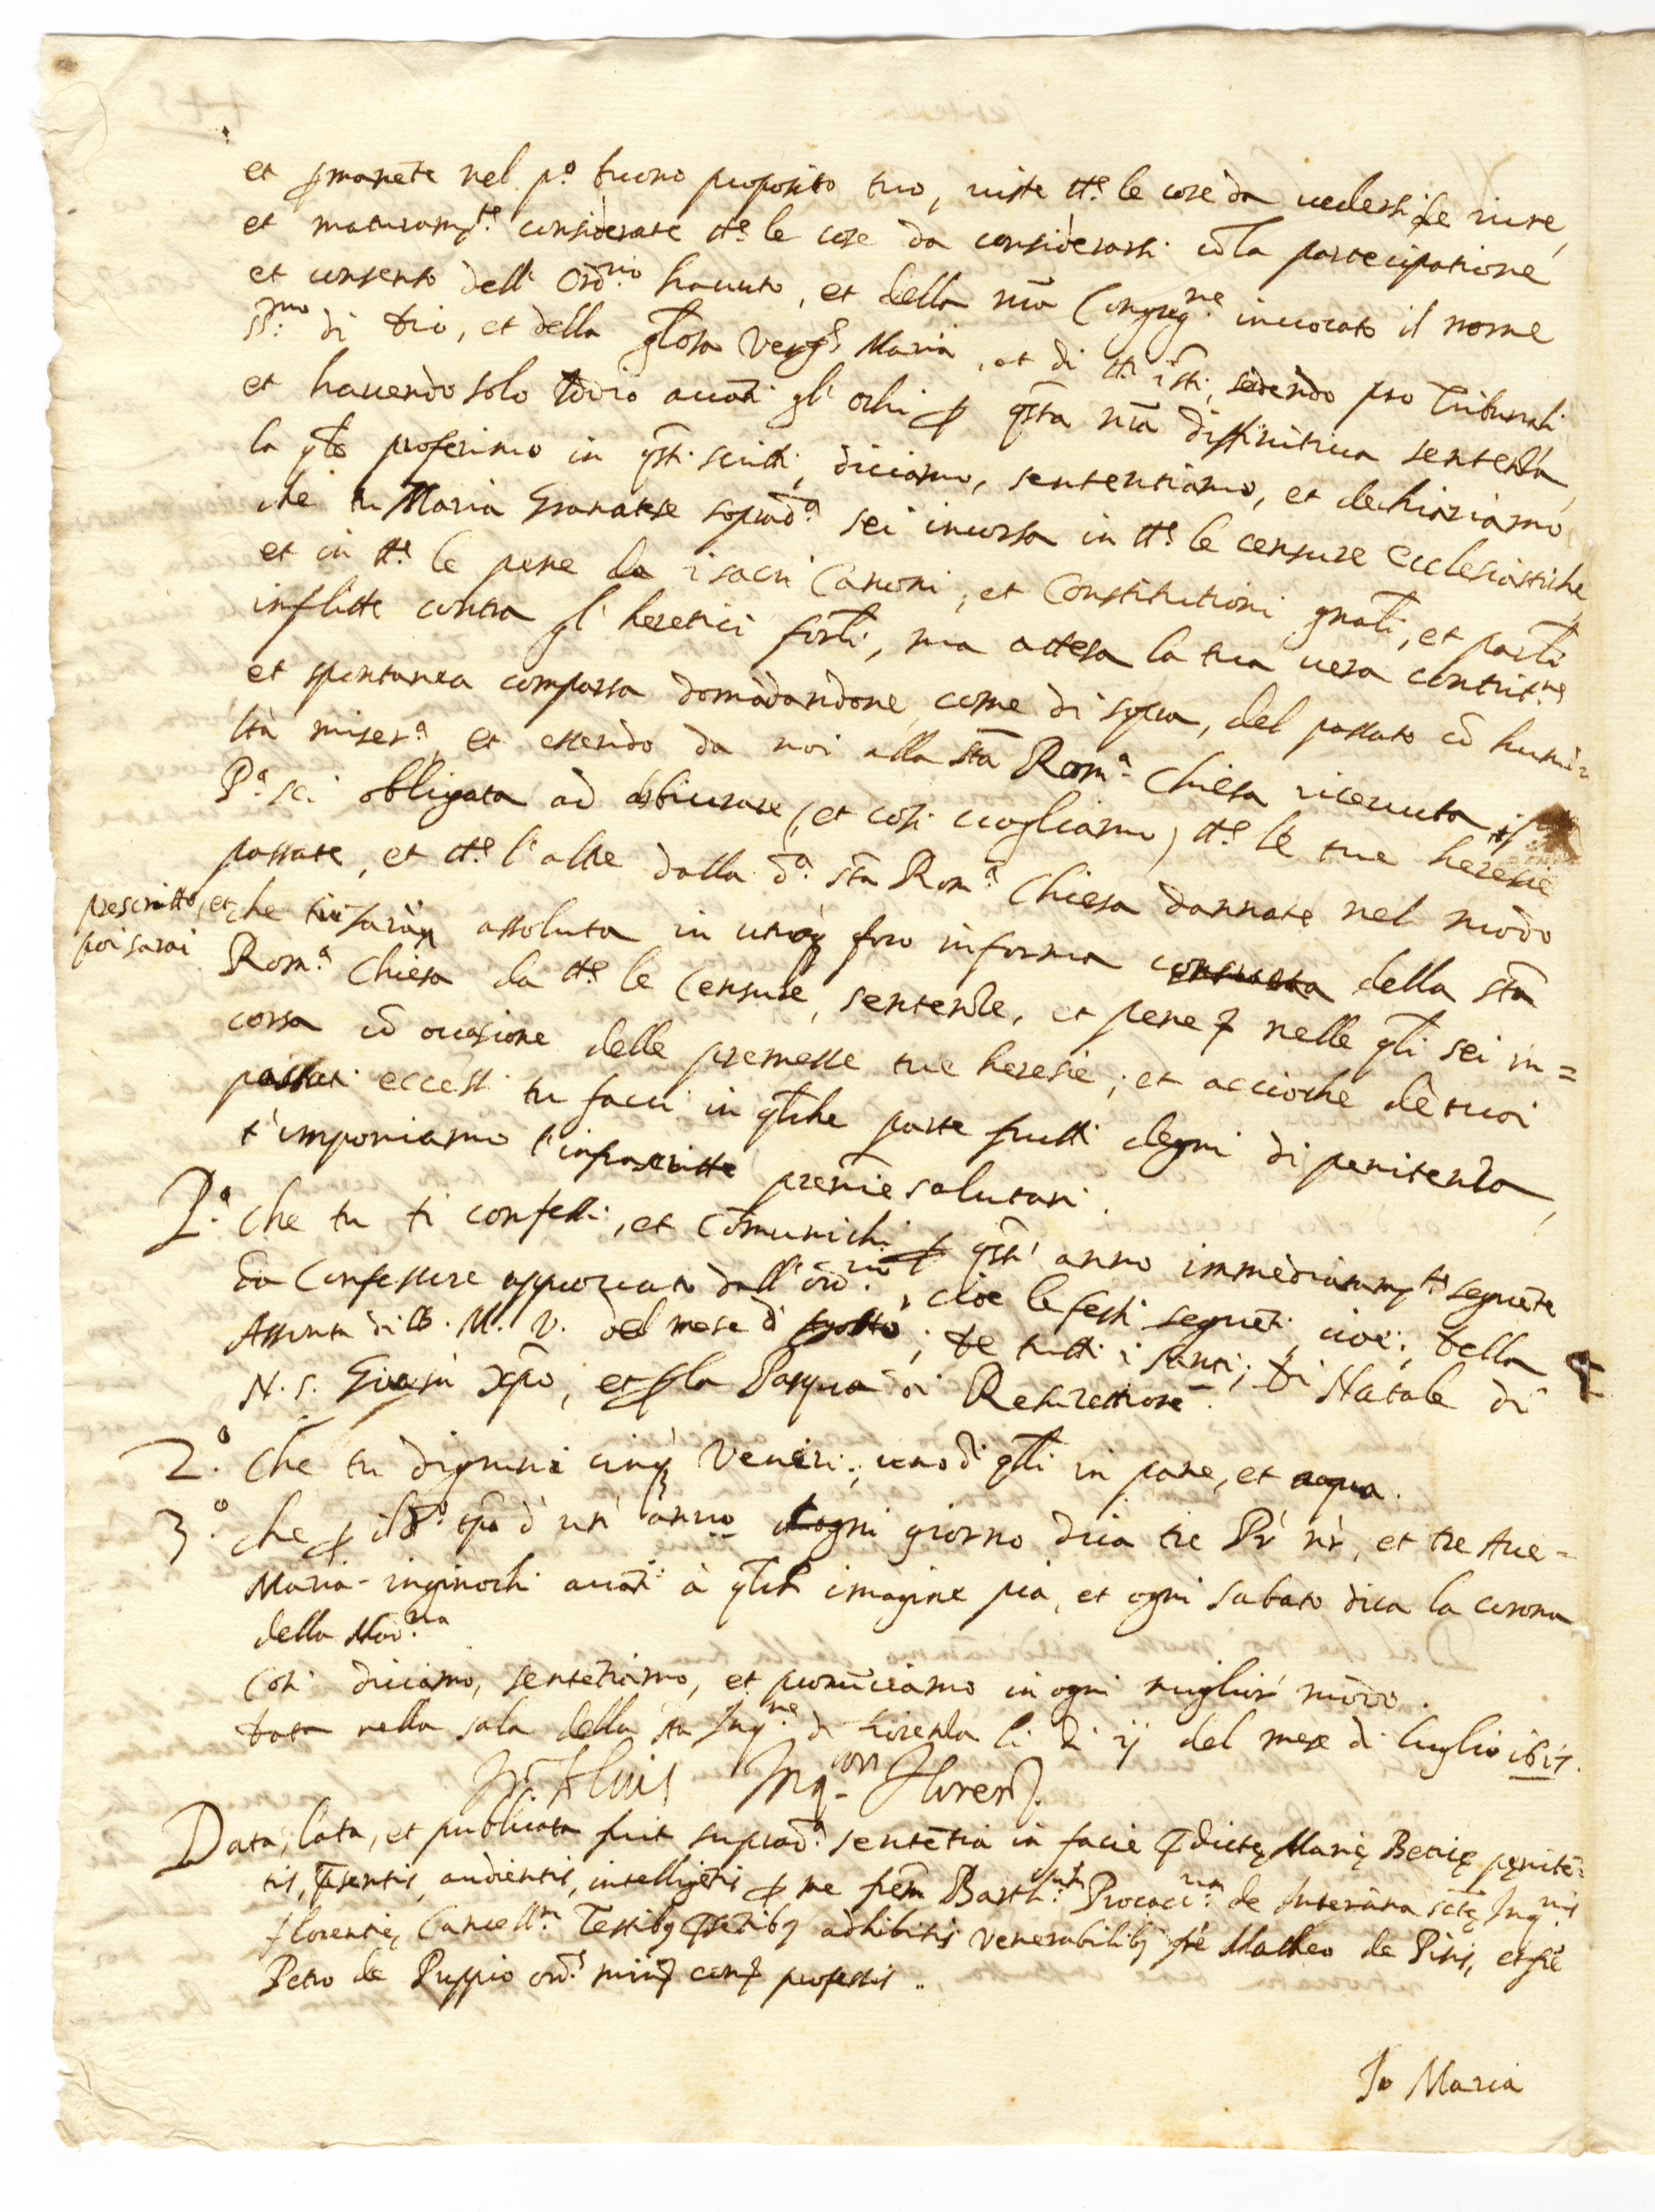 et ꝑmanẽte nel p.º buono proposito tuo, uiste tt.e le cose da uedersi de iure,
et maturamṭe considerate tt.e le cose da considerarsi cõ la partecipatione
et consenso dell' Ord.rio hauuto, et della nr̃a Congreg.ne inuocato il nome
SS.mo di Dio, et della gl̃osa Verg.e Maria, et di tt.i i s̃ti, sedendo pro Tribunali
et hauendo solo Iddio auãti gl' ochi ꝑ q̃sta nr̃a diffinitiua sentenza,
la q̃le proferimo in q̃sti scritti, diciamo, sententiamo, et dechiariamo,
che tu Maria Granatese soprad.a sei incorsa in tt.e le censure ecclesiastiche,
et in tt.e le pene da i sacri Canoni, et Constitutioni gñali, et parĩti
inflitte contra gl' heretici forl̃i, ma attesa la tua uera contrit.ne
et spontanea comparsa domãdandone, come di sopra, del passato cõ humi=
ltà miser.a, et essendo da noi alla s̃ta Rom.a Chiesa riceuuta,
P.a sei obligata ad abbiurare (et cosi uogliamo) tt.e le tue heresie
passate, et tt.e l' altre dalla d.a s̃ta Rom.a Chiesa dannate nel modo
prescritto, et che assoluta in utroq foro in forma della s̃ta
poi sarai
Rom.a Chiesa da tt.e le Censure, sentenze, et pene nelle q̃li sei in=
corsa cõ occasione delle premesse tue heresie; et accioche de tuoi
passati eccessi tu facci in q̃lche parte frutti degni di penitenza,
t'imponiamo l'infrascritte peñie salutari.
P.a Che tu ti confessi, et cõmunichi ꝑ q̃st' anno immediatamṭe seguẽte
da Confessore approuato dall' ord.rio, cioe le feste seguẽti, cioe; della
Assunta di B. M. V. del mese d' Agosto; de tutti i santi; di Natale di
N. S. Giesù Xp̃o, et ꝑ la Pasqua di Resurettione.
2.º Che tu digiuni cinq Veneri; uno d' q̃lli in pane, et acqua.
3.º che ꝑ il d.º sp.º d' un' anno ogni giorno dica tre Pr̃ nr̃, et tre Aue=
Maria inginochi auãti à q̃lch imagine pia, et ogni sabato dica la corona
della Mad.na
Cosi diciamo, sentẽtiamo, et pronũciamo in ogni miglior modo.
Data nella sala della s̃ta Inq.ne di Fiorenza li di ij del mese di luglio
Inq.or Florenz.
Data, lata, et publicata fuit suprad.a sentẽtia in facie p̃dictę Marię Betrię pęnitẽ=
tis, p̃sentis, audientis, intelligẽtis ꝑ me frẽm Barth.um Procacc.um de Interãna s̃ctę Inq.nis
Florentię Cancell.m Testibq p̃sẽtibq adhibitis venerabilibq fr̃e Matheo de Pisis, et fr̃e
Petro de Puppio ord.s min conu professis.
Io Maria